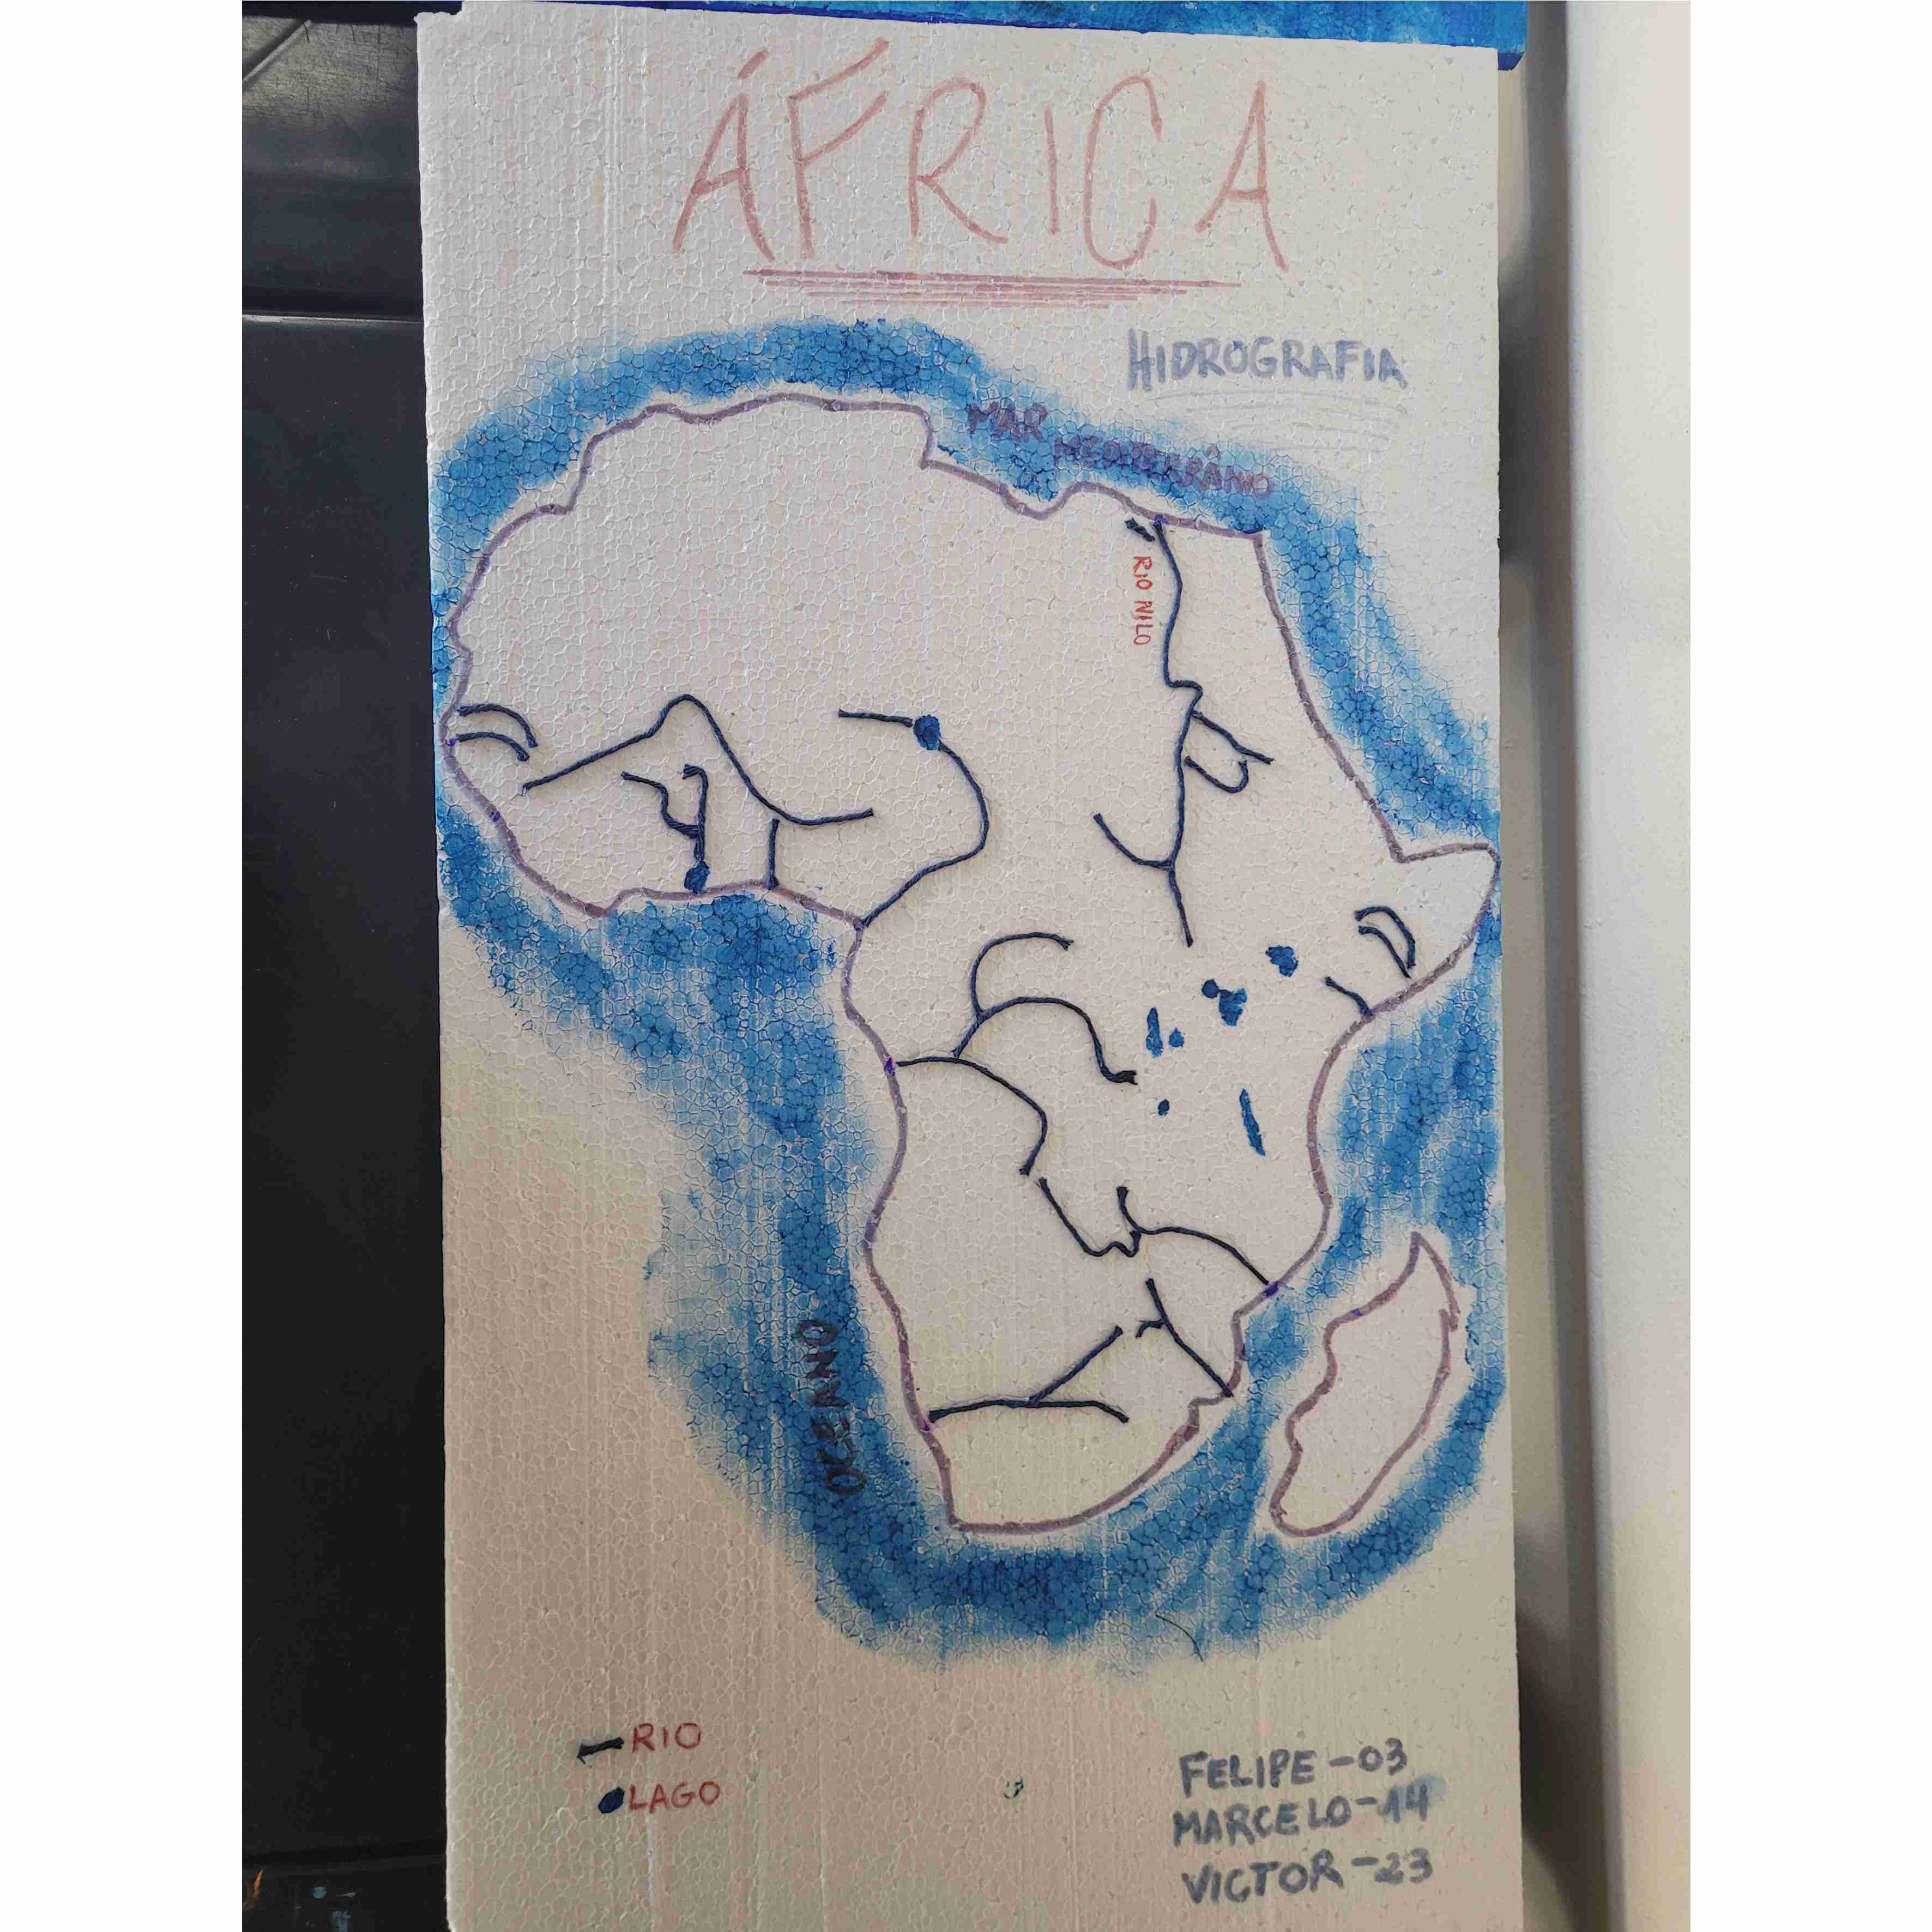 ÁFRICA
HIDROGRAFIA
MAR
MEDITERRÂNIO
RIO NILO
OCEANO
RIO
LAGO
FELIPE - 03
MARCELO - 14
VICTOR - 23